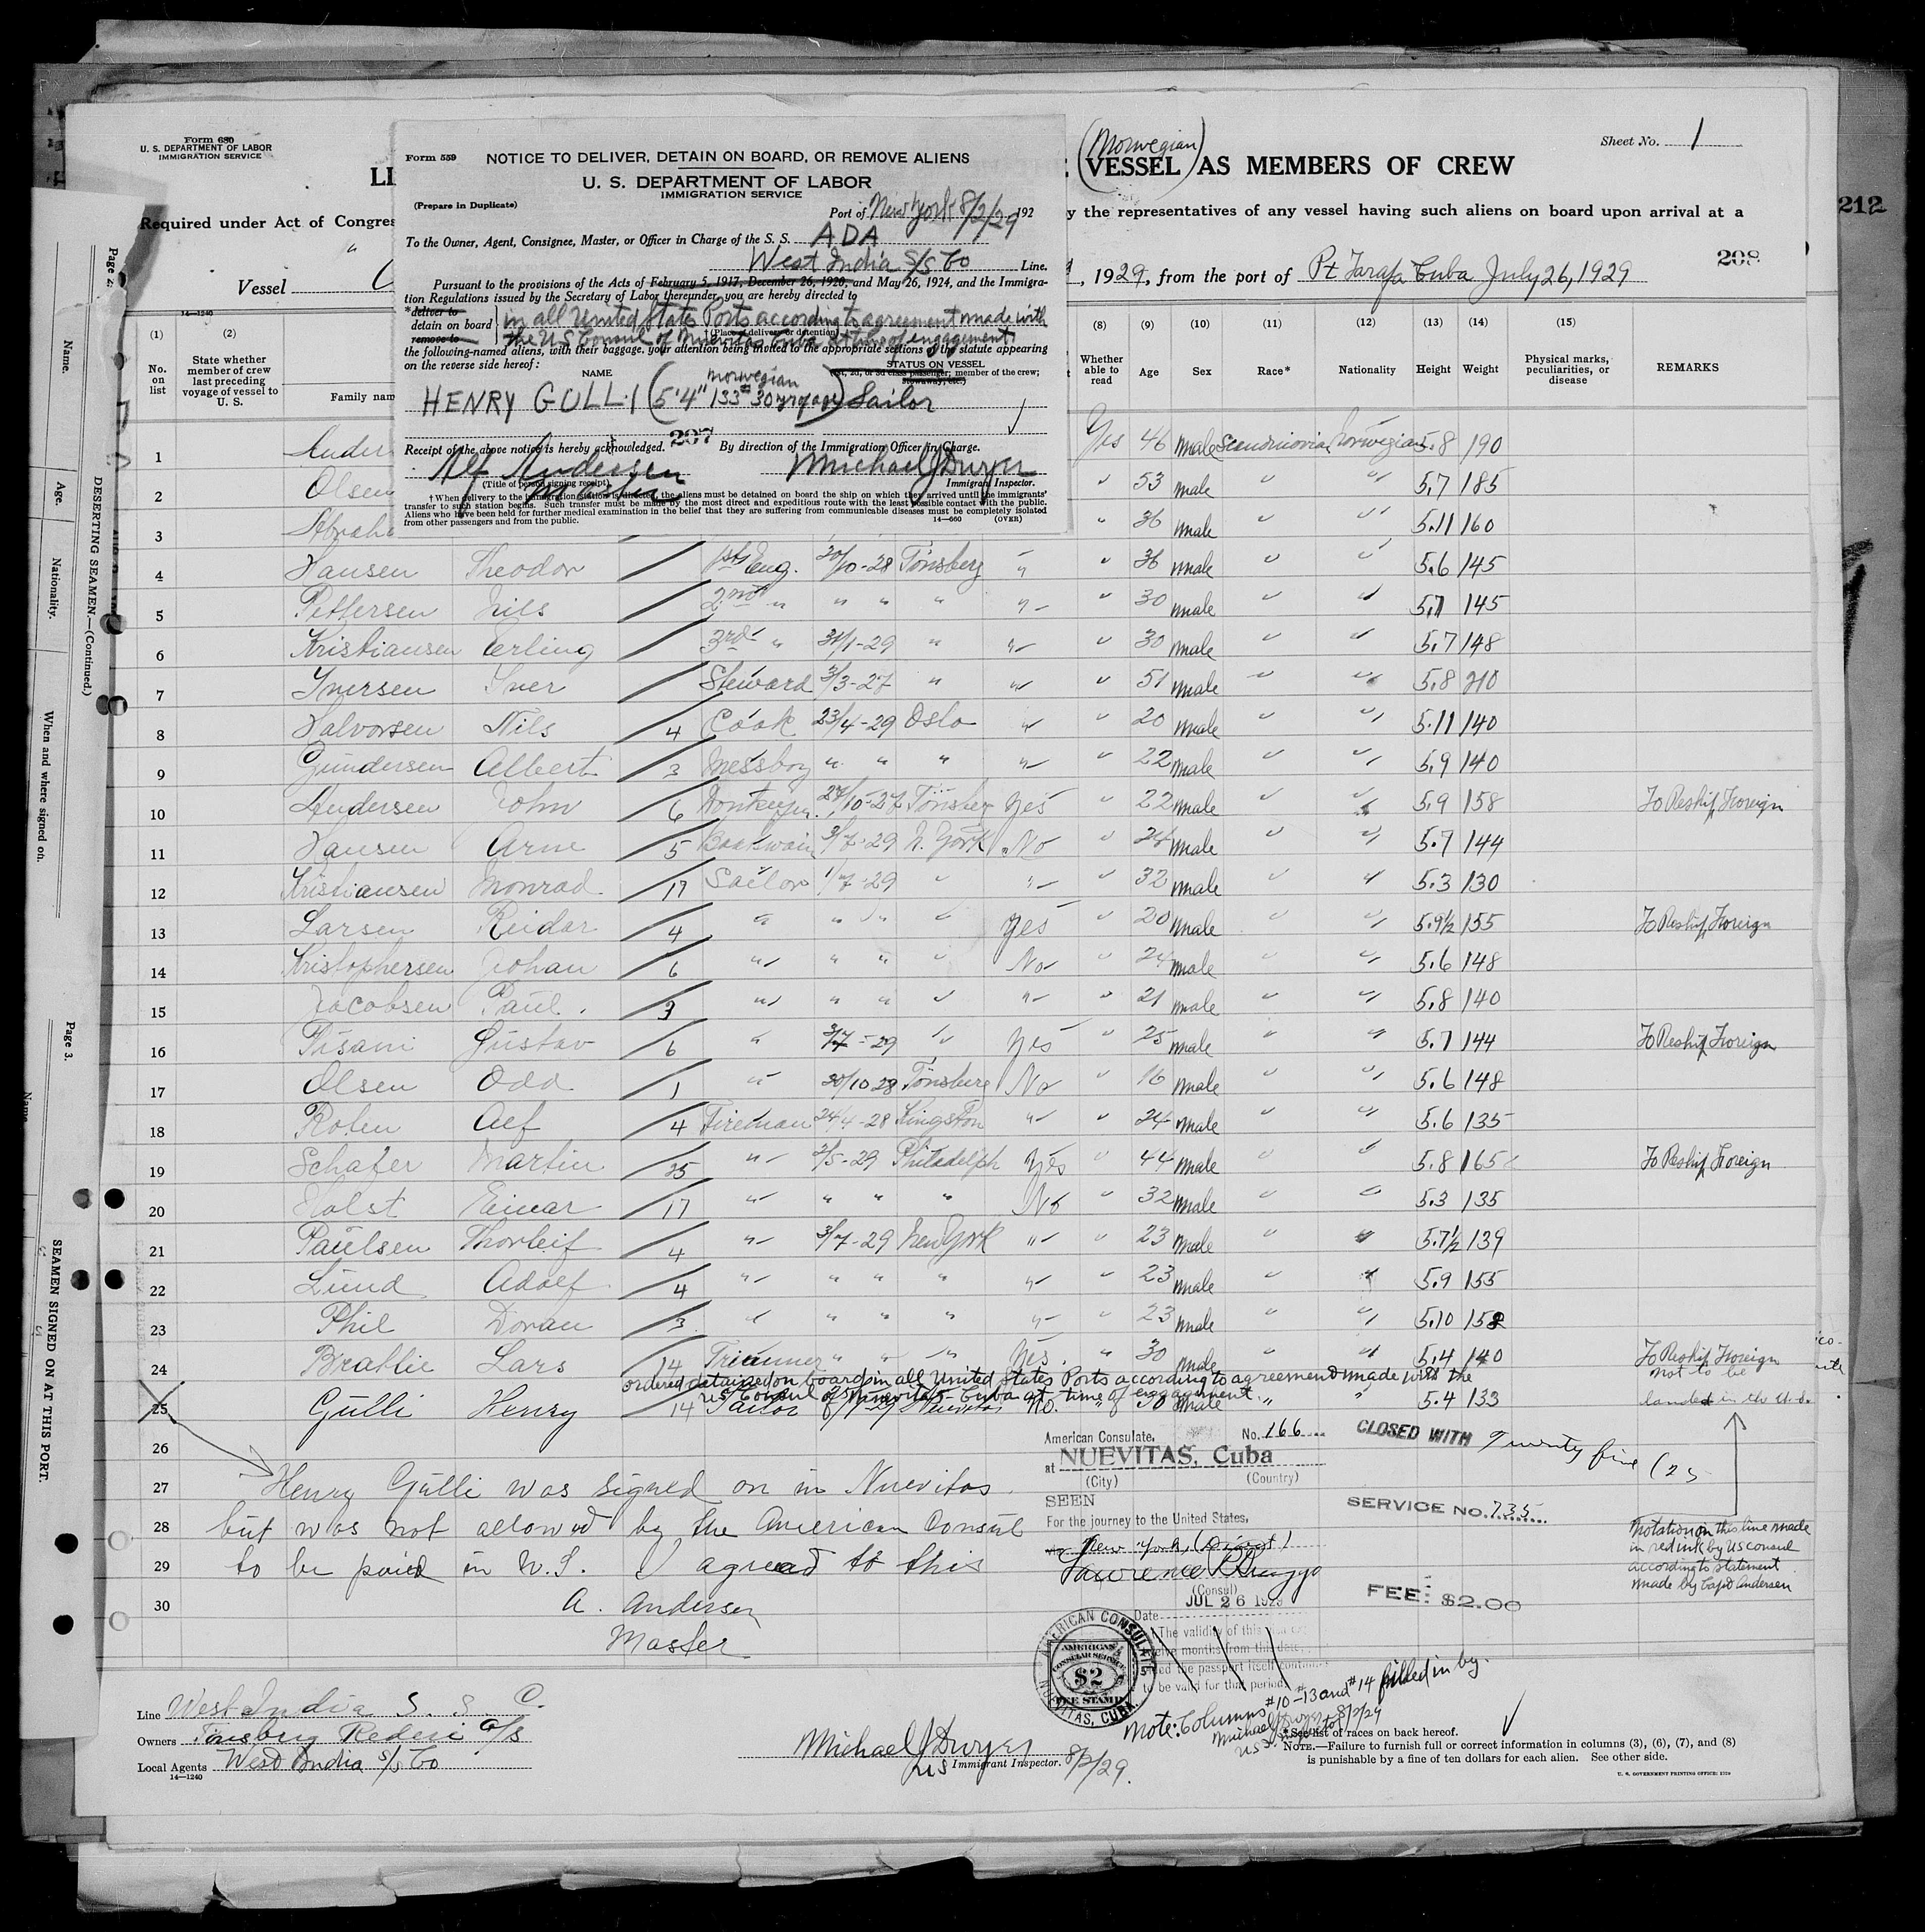 Form 680
U. S. DEPARTMENT OF LABOR
IMMIGRATION SERVICE
LI
(Norwegian)
VESSEL AS MEMBERS OF CREW
Sheet No. 1
Required under Act of Congres
y the representatives of any vessel having such aliens on board upon arrival at a
212
208
Vessel
, 1929, from the port of Pt Tarafa Cuba July 26, 1929
Form 559
NOTICE TO DELIVER, DETAIN ON BOARD, OR REMOVE ALIENS
U. S. DEPARTMENT OF LABOR
IMMIGRATION SERVICE
(Prepare in Duplicate)
Port of New York 8/2/29 192
To the Owner, Agent, Consignee, Master, or Officer in Charge of the S. S. ADA
West India S/S Co Line.
Pursuant to the provisions of the Acts of February 5, 1917, December 26, 1920, and May 26, 1924, and the Immigra-
tion Regulations issued by the Secretary of Labor thereunder, you are hereby directed to
*deliver to
detain on board
remove to
in all United States Ports according to agreement made with
†(Place of delivery or detention)
the US Consul of Nuevitas Cuba at time of engagement.
the following-named aliens, with their baggage, your attention being invited to the appropriate sections of the statute appearing
on the reverse side hereof:
NAME
STATUS ON VESSEL
(1st, 2d, or 3d class passenger; member of the crew;
stowaway, etc.)
HENRY GULLI (5'4" 133# 30 yrs of age norwegian) Sailor
207
Receipt of the above notice is hereby acknowledged.
By direction of the Immigration Officer in Charge.
Alf Andersen
Michael J Dwyer
(Title of person signing receipt)
Master
Immigrant Inspector.
†When delivery to the immigration station is directed, the aliens must be detained on board the ship on which they arrived until the immigrants'
transfer to such station begins. Such transfer must be made by the most direct and expeditious route with the least possible contact with the public.
Aliens who have been held for further medical examination in the belief that they are suffering from communicable diseases must be completely isolated
from other passengers and from the public.
14—660 (OVER)
14—1240
(1) (2) (8) (9) (10) (11) (12) (13) (14) (15)
No. on list
State whether member of crew last preceding voyage of vessel to U. S.
Family nam
Whether able to read
Age
Sex
Race*
Nationality
Height
Weight
Physical marks, peculiarities, or disease
REMARKS
1 Ander Yes 46 male Scandinavian Norwegian 5.8 190
2 Olsen " 53 male " " 5.7 185
3 Abraha " 36 male " " 5.11 160
4 Hansen Theodor 1st Eng. 30/10-28 Tönsberg " " 36 male " " 5.6 145
5 Pettersen Nils 2nd " " " " " " 30 male " " 5.7 145
6 Kristiansen Erling 3rd " 31/1-29 " " " 30 male " " 5.7 148
7 Iversen Iver Steward 3/3-27 " " " 51 male " " 5.8 210
8 Halvorsen Nils 4 Cook 23/4-29 Oslo " " 20 male " " 5.11 140
9 Gundersen Albert 3 Messboy " " " " " 22 male " " 5.9 140
10 Andersen John 6 27/10-27 Tönsber Yes " 22 male " " 5.9 158 To Reship Foreign
11 Hansen Arne 5 3/7-29 N. York No " 24 male " " 5.7 144
12 Kristiansen Monrad 17 Sailor 1/7-29 " " " 32 male " " 5.3 130
13 Larsen Reidar 4 " " " " Yes " 20 male " " 5.9½ 155 To Reship Foreign
14 Kristophersen Johan 6 " " " " No " 24 male " " 5.6 148
15 Jacobsen Paul. 3 " " " " " " 21 male " " 5.8 140
16 Gustav 6 " 3/7-29 " Yes " 25 male " " 5.7 144 To Reship Foreign
17 Olsen Odd 1 " 30/10 28 Tönsberg No " 16 male " " 5.6 148
18 Alf 4 Fireman 24/4-28 Kingston " " 24 male " " 5.6 135
19 Schafer Martin 25 " 2/5-29 Philadelph Yes " 44 male " " 5.8 165 To Reship Foreign
20 Holst Einar 17 " " " " No " 32 male " " 5.3 135
21 Paulsen Thorleif 4 " 3/7-29 New York " " 23 male " " 5.7½ 139
22 Lund Adolf 4 " " " " " " 23 male " " 5.9 155
23 Phil Doran 3 " " " " " " 23 male " " 5.10 158
24 Brattlie Lars 14 Trimmer " " " Yes. " 30 male " " 5.4 140 To Reship Foreign
ordered detained on board in all United States Ports according to agreement made with the
US Consul of Nuevitas Cuba at time of engagement.
25 Gulli Henry 14 Sailor Nuevitas No. " 30 male " " 5.4 133 not to be landed in the U.S.
26
27 Henry Gulli was signed on in Nuevitas
28 but was not allowed by the American Consul
29 to be paid in U.S. I agreed to this
30 A. Andersen
Master
American Consulate, No. 166
at NUEVITAS, Cuba
(City) (Country)
SEEN
For the journey to the United States,
via New York, (Direct)
(Consul)
JUL 26 192
Date
The validity of this
months from the date
the passport itself
to be valid for that period.
AMERICAN CONSULATE
NUEVITAS, CUBA.
AMERICAN
CONSULAR SERVICE
$2
FEE STAMP
CLOSED WITH Twenty five (25
SERVICE NO. 735
FEE: $2.00
Notation on this line made
in red ink by US consul
according to statement
made by Capt Andersen
Note: Columns #10-#13 and #14 filled in by
Michael J Dwyer
US 8/2/29
Line West India S. S. C.
Owners Tönsberg Rederi A/S
Local Agents West India S/S Co
14—1240
Michael J Dwyer
US Immigrant Inspector. 8/2/29.
*See list of races on back hereof.
NOTE.—Failure to furnish full or correct information in columns (3), (6), (7), and (8)
is punishable by a fine of ten dollars for each alien. See other side.
U. S. GOVERNMENT PRINTING OFFICE:
Page 2.
DESERTING SEAMEN.—(Continued.)
Name.
Age.
Nationality.
When and where signed on.
Page 3.
SEAMEN SIGNED ON AT THIS PORT.
Name